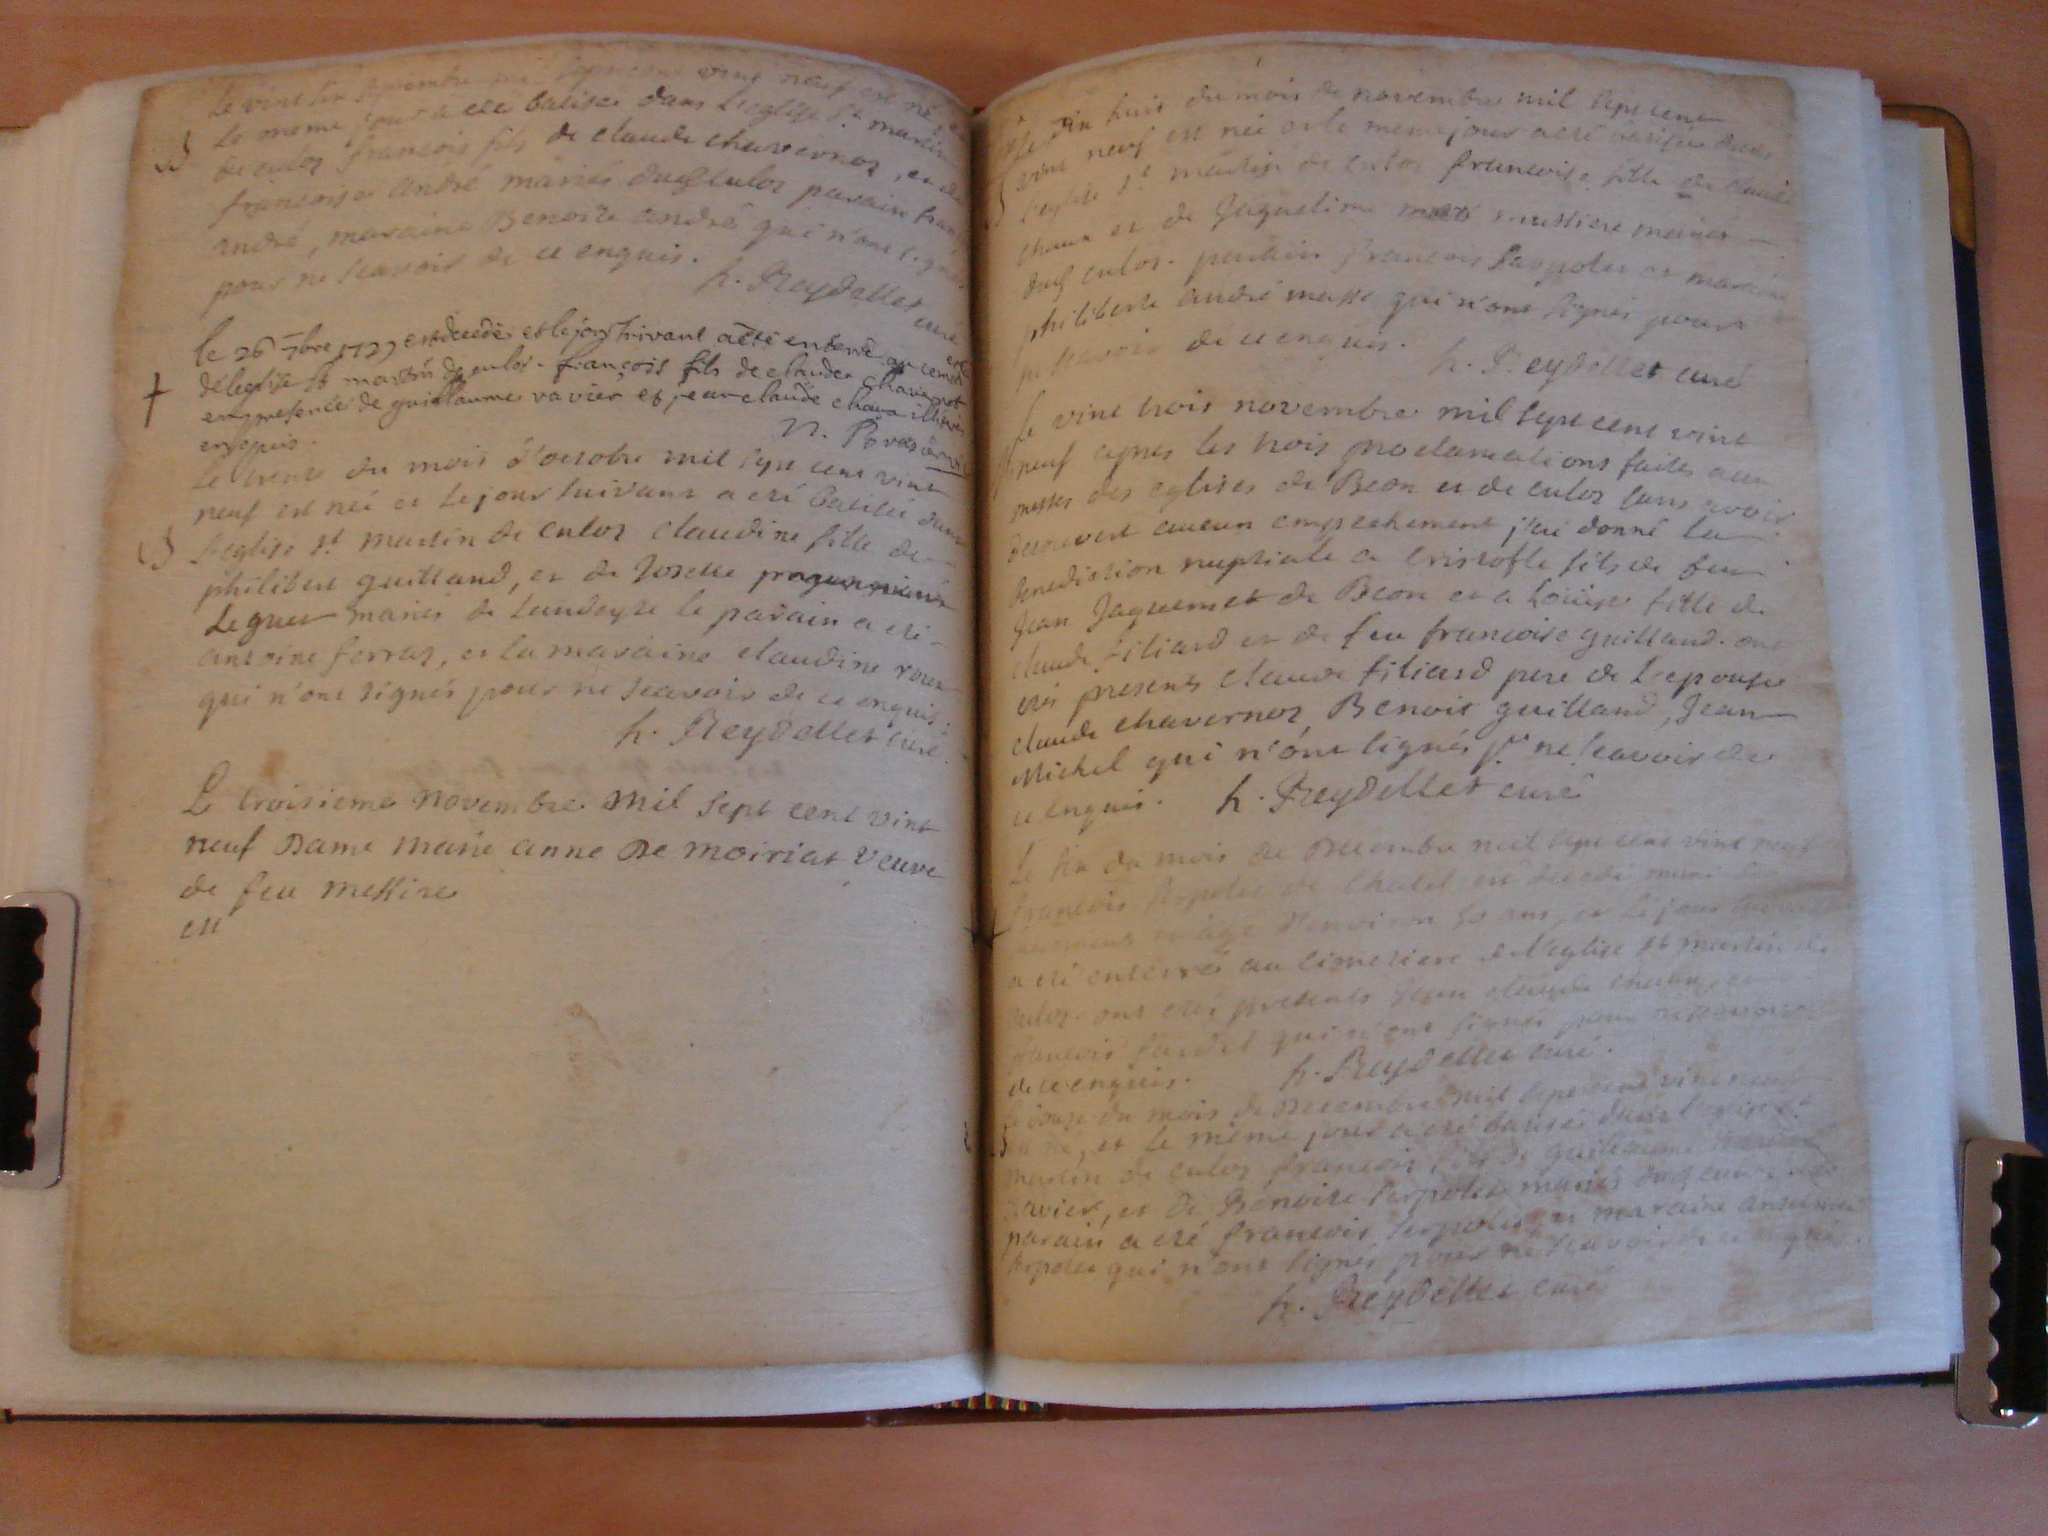 Le vint six septembre mil sept cent vint neuf est né et
le meme jour a eté batisé dans l'eglise St martin
de culoz francois fils de claude chavernoz, et de
francoise andré mariés dud culoz parain fran
andré, maraine Benoite andré qui n'ont signés
pour ne scavoir de ce enquis.
h. Reydellet curé
le 26 7bre 1729 est decedé et le jour suivant a eté enterré au
de leglise st martin de culoz. françois fils de claude
en presence de guillaume vavier et jean claude chana illiteres
enquis.
Le trente du mois d'octobre mil sept cent vint
neuf est né et le jour suivant a eté batisée dans
l'eglise st martin de culoz claudine fille de
philibert guilland, et de Josette
Leguer mariés de Landeyse le parain a eté
antoine ferraz, et la maraine claudine
qui n'ont signés pour ne scavoir de ce enquis.
h. Reydellet curé.
Le troisieme novembre mil sept cent vint
neuf Dame marie anne De moiriat veuve
de feu messire
en
Le dix huit du mois de novembre mil sept cent
vint neuf est née et le meme jour a eté batisée dans
l'eglise st martin de culoz francoise fille de claude
chana et de Jaqueline mariés
dud culoz. parain francois Serpolet et maraine
philiberte andré masse qui n'ont signés pour
ne scavoir de ce enquis.
h. Reydellet curé
Le vint trois novembre mil sept cent vint
neuf apres les trois proclamations faites aux
messes des eglises de Beon et de culoz sans avoir
decouvert aucun empechement j'ai donné la
benediction nuptiale a cristofle fils de feu
Jean Jaquemet de Beon et a Loüise fille de
claude filiard et de feu francoise guilland. ont
etés presents claude filiard pere de l'epouse
claude chavernoz, Benoit guilland, Jean
Michel qui n'ont signés pr ne scavoir de
ce enquis.
h. Reydellet curé
Le six du mois de Decembre mil sept cent vint neuf
francois serpolet de Chatel est decedé muni des
sacremens agé d'environ 50 ans, et le jour suivant
a eté enterré au cimetiere de l'eglise st martin de
culoz. ont eté presents Jean claude chana, et
francois qui n'ont signés pour ne scavoir
de ce enquis.
h. Reydellet curé.
Le douze du mois de Decembre mil sept cent vint neuf
est né, et le même jour a eté batisé dans l'eglise st
martin de culoz francois fils de guillaume
vavier, et de Benoite serpolet mariés dud culoz
parain a eté francois serpolet, et maraine
serpolet qui n'ont signés pour ne scavoir de ce enquis.
h. Reydellet curé